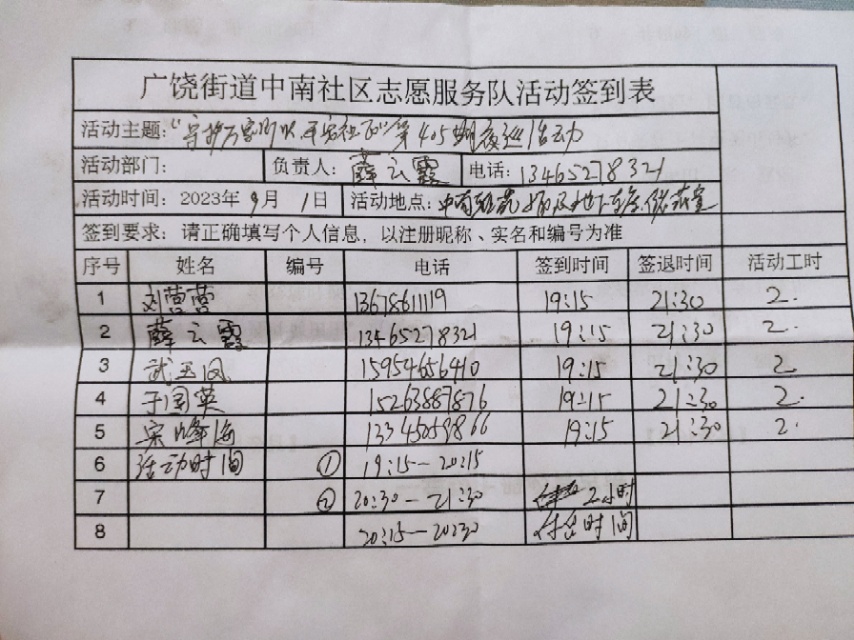 广饶街道中南社区志愿服务队活动签到表
活动主题:“守护万家灯火,平安社区”第405期夜巡活动
活动部门: 负责人: 薛云霞 电话: 13465278321
活动时间: 2023年 9月 1日 活动地点: 中南 地下车库,储藏室
签到要求: 请正确填写个人信息, 以注册昵称、实名和编号为准
序号 姓名 编号 电话 签到时间 签退时间 活动工时
1 刘营营 13678611119 19:15 21:30 2.
2 薛云霞 13465278321 19:15 21:30 2.
3 武玉凤 15954656410 19:15 21:30 2
4 于国英 15263887876 19:15 21:30 2.
5 宋峰海 13345059866 19:15 21:30 2.
6 活动时间 ① 19:15-20:15
7 ② 20:30-21:30 2小时
8 20:15-2030 休息时间